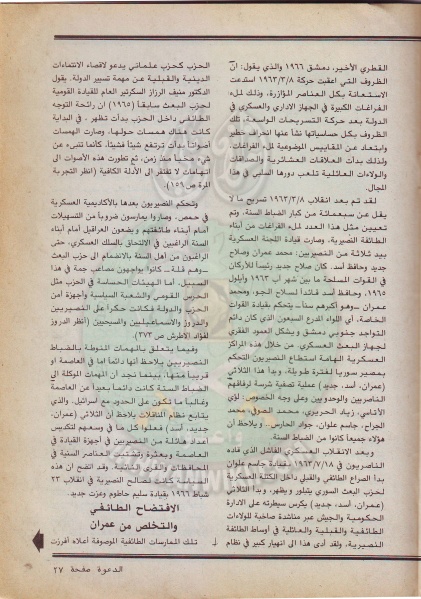 القطري الأخير، دمشق ١٩٦٦ والذي يقول: أن
الظروف التي اعقبت حركة ١٩٦٣/٣/٨ استدعت
الاستعانة بكل العناصر المؤازرة، وذلك لملء
الفراغات الكبيرة في الجهاز الاداري والعسكري في
الدولة بعد حركة التسريحات الواسعة، تلك
الظروف بكل حساسياتها نشأ عنها انحراف خطير
وابتعاد عن المقاييس الموضوعية لملء الفراغات،
ولذلك بدأت العلاقات العشائرية والصداقات
والولاءات العائلية تلعب دورها السلبي في هذا
المجال.
لقد تم بعد انقلاب ١٩٦٣/٣/٨ تسريح ما لا
يقل عن سبعمائة من كبار الضباط السنة، وتم
تعيين مثل هذا العدد لملء الفراغات من أبناء
الطائفة النصيرية. وصارت قيادة اللجنة العسكرية
بيد ثلاثة من النصيريين: محمد عمران وصلاح
جديد وحافظ أسد. كان صلاح جديد رئيساً للأركان
في القوات المسلحة ما بين شهر آب ١٩٦٣ وأيلول
١٩٦٥، وحافظ أسد قائداً لسلاح الجو، ومحمد
عمران ـ وهو أكبرهم سناً ـ يتحكم بقيادة القوات
الخاصة، أي اللواء المدرع السبعون الذي كان دائم
التواجد جنوبي دمشق ويشكل العمود الفقري
لجهاز البعث العسكري. من خلال هذه المراكز
العسكرية الهامة استطاع النصيريون التحكم
بمصير سوريا لفترة طويلة، وبدأ هذا الثلاثي
(عمران، أسد، جديد) عملية تصفية شرسة لرفاقهم
الناصريين والوحدويين وعلى وجه الخصوص: لؤي
الأتاسي، زياد الحريري، محمد الصوفي، محمد
الجراح، جاسم علوان، جواد الحارس.. ويلاحظ أن
هؤلاء جميعا كانوا من الضباط السنة.
وبعد الانقلاب العسكري الفاشل الذي قاده
الناصريون في ١٩٦٣/٧/١٨ بقيادة جاسم علوان
بدأ الصراع الطائفي والقبلي داخل الكتلة العسكرية
لحزب البعث السوري يتبلور ويظهر، وبدأ الثلاثي
(عمران، أسد، جديد) يكرس سيطرته على الادارة
الحكومية والجيش عبر مناشدة صاخبة للولاءات
الطائفية والقبلية والعائلية في أوساط الطائفة
النصيرية. ولقد أدى هذا الى انهيار كبير في نظام
الحزب كحزب علماني يدعو لاقصاء الانتماءات
الدينية والقبلية عن مهمة تسيير الدولة. يقول
الدكتور منيف الرزاز السكرتير العام للقيادة القومية
لحزب البعث سابقاً (١٩٦٥) ان رائحة التوجه
الطائفي داخل الحزب بدأت تظهر، في البداية
كانت هناك همسات حولها، وصارت الهمسات
أصواتاً بدأت ترتفع شيئاً فشيئاً، كأنما تنبىء عن
شيء مخبأ منذ زمن، ثم تطورت هذه الأصوات الى
اتهامات لا تفتقر الى الأدلة الكافية (انظر التجربة
المرة ص ١٥٩)
وتحكم النصيريون بعدها بالأكاديمية العسكرية
في حمص، وصاروا يمارسون ضروباً من التسهيلات
أمام أبناء طائفتهم ويضعون العراقيل أمام أبناء
السنة الراغبين في الالتحاق بالسلك العسكري، حتى
الراغبون من أهل السنة بالانضمام الى حزب البعث
ـ وهم قلة ـ كانوا يواجهون مصاعب جمة في هذا
السبيل. أما الهيئات الحساسة في الحزب مثل
الحرس القومي والشعبة السياسية وأجهزة أمن
الحزب والدولة فكانت حكراً على النصيريين
والدروز والاسماعيليين والمسيحيين (انظر الدروز
لفؤاد الأطرش ص ٣٧٣)
وفيما يتعلق بالمهمات المنوطة بالضباط
النصيريين يلاحظ أنها دائما اما في العاصمة أو
قريباً منها، بينما نجد ان المهمات الموكلة الى
الضباط السنة كانت دائماً بعيداً عن العاصمة
وغالباً ما تكون على الحدود مع اسرائيل، والذي
يتابع نظام التنقلات يلاحظ أن الثلاثي (عمران،
جديد، أسد) فعلوا كل ما في وسعهم لتكديس
أعداد هائلة من النصيريين في أجهزة القيادة في
العاصمة وبعثرة وتشتيت العناصر السنية في
المحافظات والقرى النائية. وقد اتضح ان هذه
لصالح النصيرية في انقلاب ٢٣
شباط ١٩٦٦ بقيادة سليم حاطوم وعزت جديد.
الافتضاح الطائفي
والتخلص من عمران
تلك الممارسات الطائفية الموصوفة أعلاه أفرزت
الدعوة صفحة ٢٧